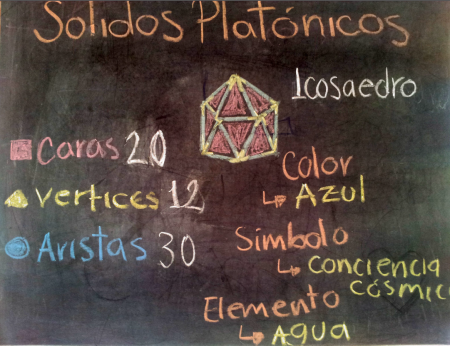 Sólidos Platónicos
Icosaedro
Caras 20
Vertices 12
Aristas 30
Color
Azul
Símbolo
Conciencia
cósmic
Elemento
Agua